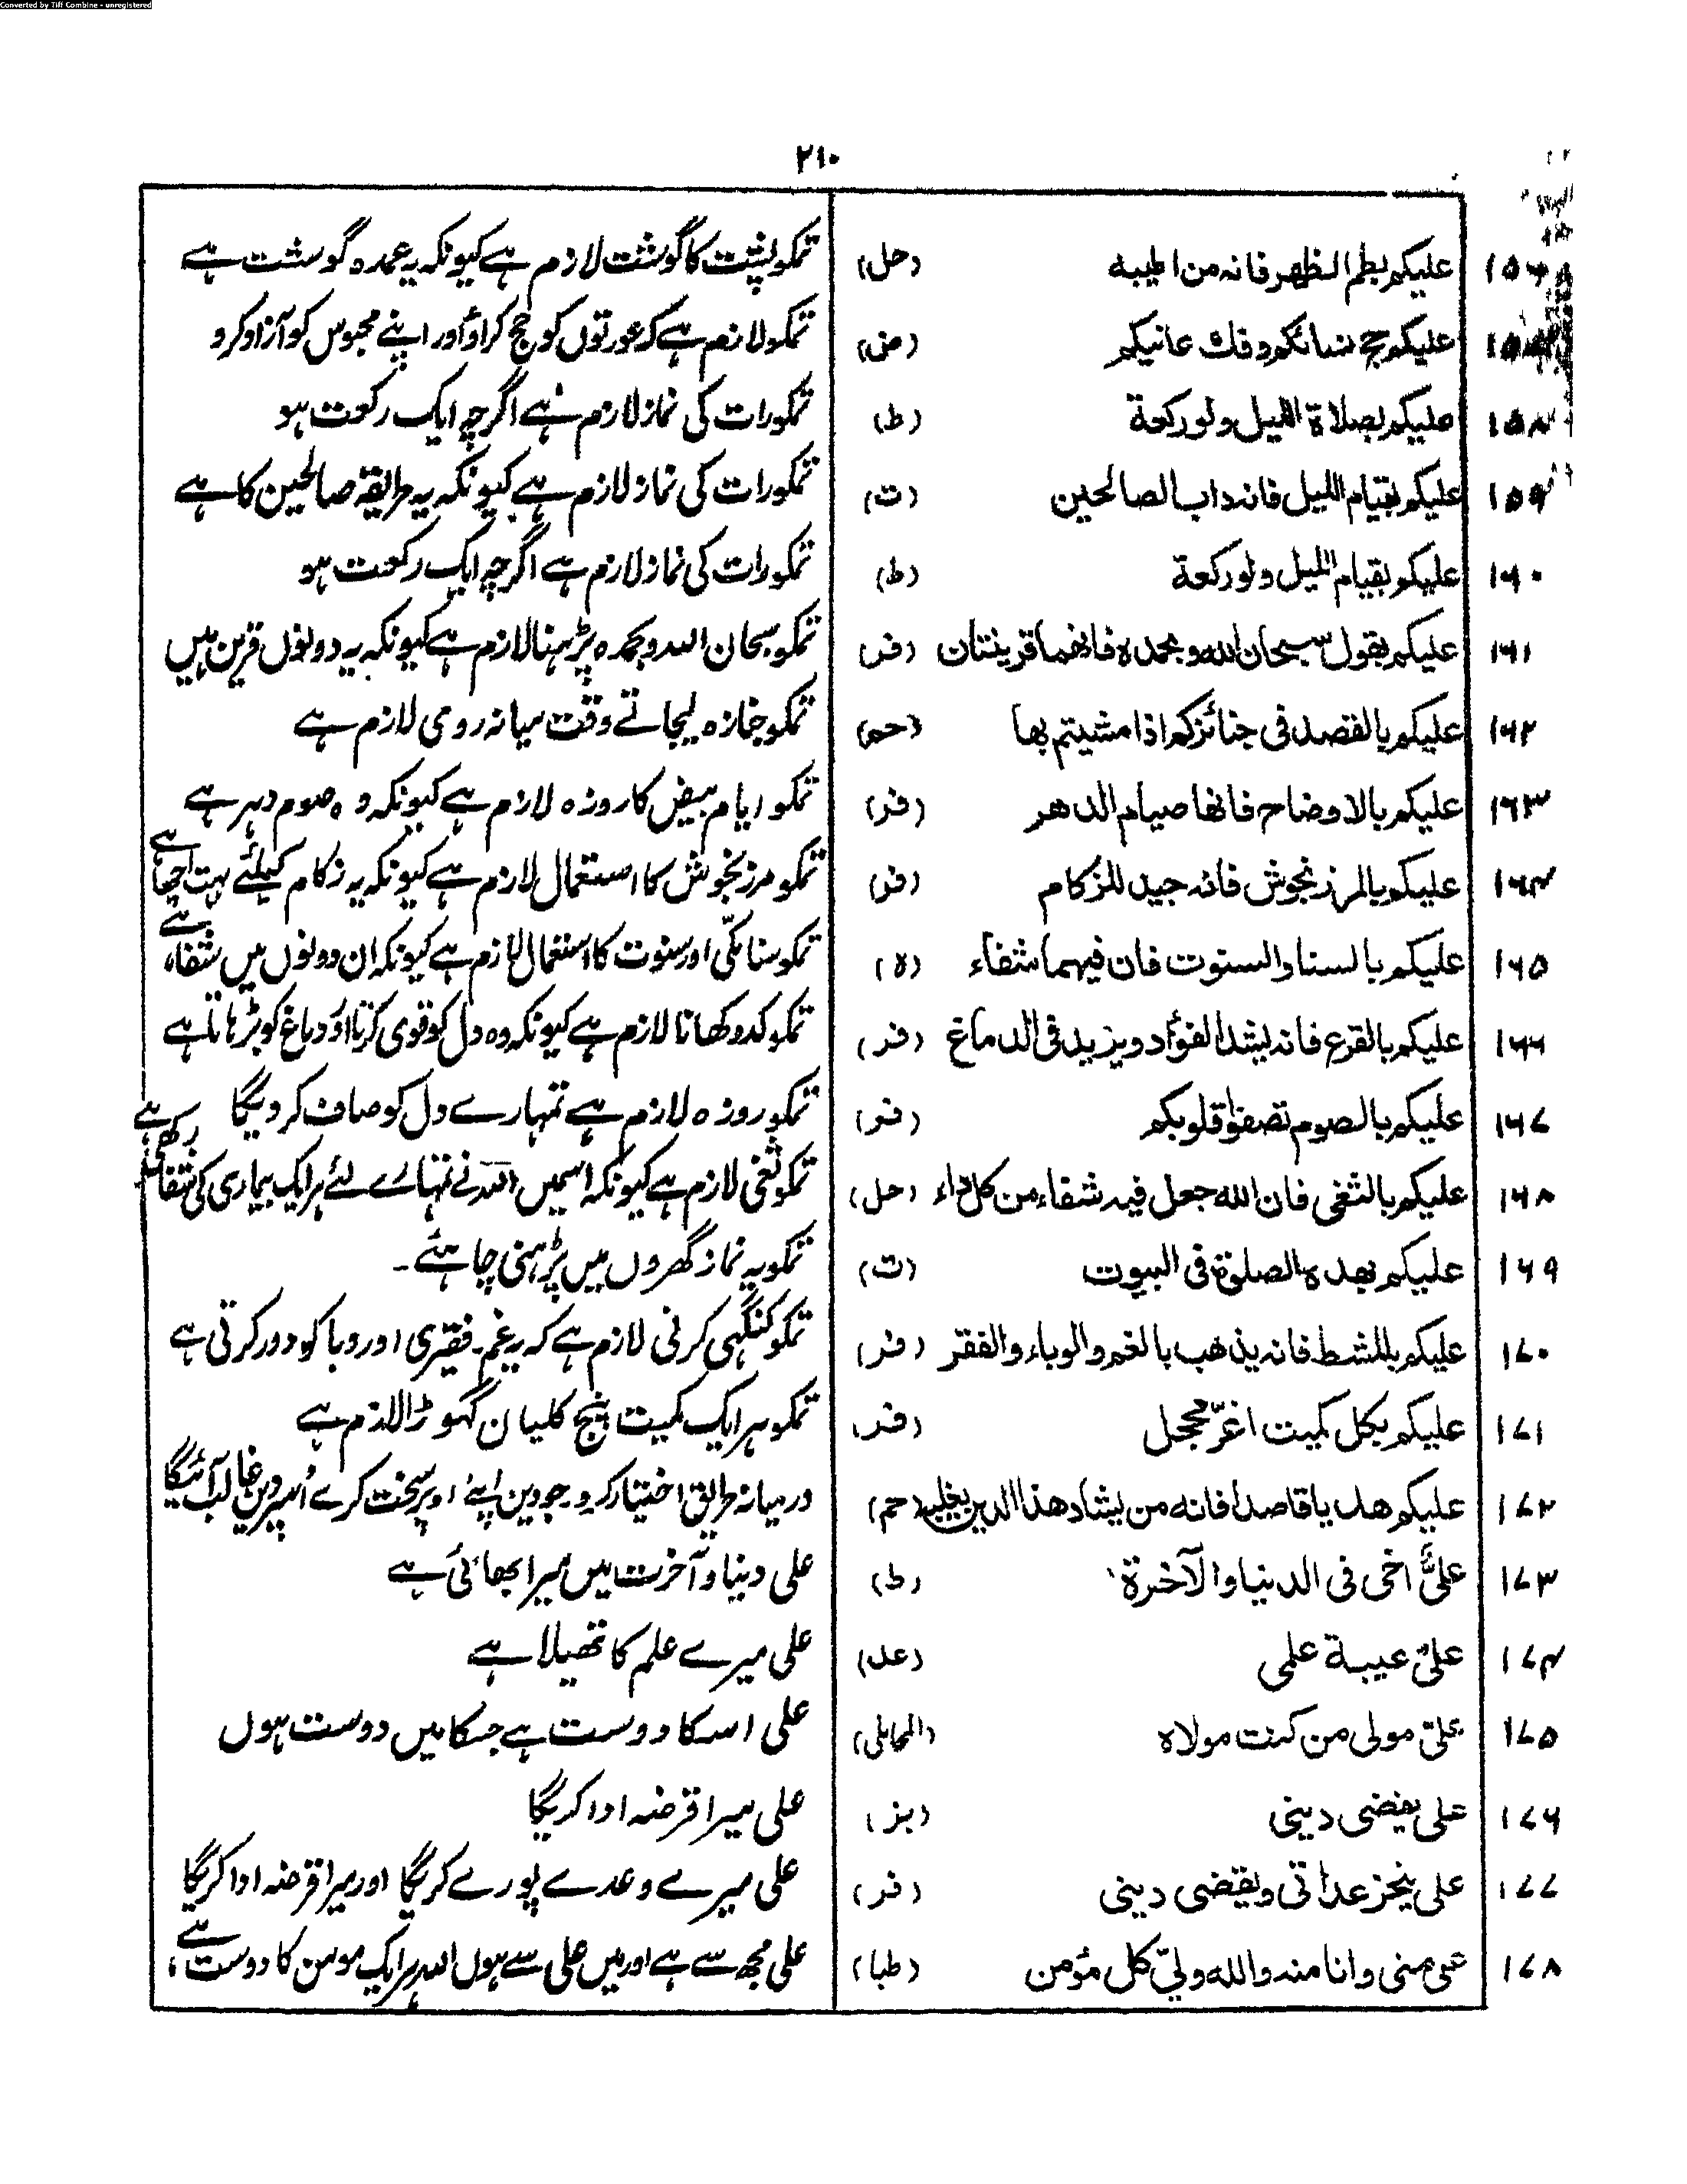 Converted by Tiff Combine - unregistered
۲۱۰
۱۵۶ علیکم بلحم الظهر فانہ من اطیبہ (حل) تمکو پشت کا گوشت لازم ہے کیونکہ یہ عمدہ گوشت ہے
علیکم حج نسائکم وفک عانیکم (ض) تمکو لازم ہے کہ عورتوں کو حج کراؤ اور اپنے محبوس کو آزاد کرو
۱۵۸ علیکم بصلاة اللیل ولو رکعة (ط) تمکو رات کی نماز لازم ہے اگرچہ ایک رکعت ہو
۱۵۹ علیکم بقیام اللیل فانہ داب الصالحین (ت) تمکو رات کی نماز لازم ہے کیونکہ یہ طریقہ صالحین کا ہے
۱۶۰ علیکم بقیام اللیل ولو رکعة (ط) تمکو رات کی نماز لازم ہے اگرچہ ایک رکعت ہو
۱۶۱ علیکم بقول سبحان اللہ وبحمدہ فانھما قرینتان (فر) تمکو سبحان اللہ وبحمدہ پڑہنا لازم ہے کیونکہ یہ دونوں قرین ہیں
۱۶۲ علیکم بالقصد فی جنائزکم اذا مشیتم بھا (حم) تمکو جنازہ لیجاتے وقت میانہ روی لازم ہے
۱۶۳ علیکم بالاوضاح فانھا صیام الدھر (فر) تمکو ایام بیض کا روزہ لازم ہے کیونکہ وہ صوم دہر ہے
۱۶۴ علیکم بالمرزنجوش فانہ جید للزکام (فر) تمکو مرزنجوش کا استعمال لازم ہے کیونکہ یہ زکام کیلئے بہت اچھا ہے
۱۶۵ علیکم بالسنا والسنوت فان فیہما شفاء (ہ) تمکو سنا مکّی اور سنوت کا استعمال لازم ہے کیونکہ ان دونوں میں شفاء ہے
۱۶۶ علیکم بالقرع فانہ یشد الفؤاد ویزید فی الدماغ (فر) تمکو کدو کھانا لازم ہے کیونکہ وہ دل کو قوی کرتا اور دماغ کو بڑہاتا ہے
۱۶۷ علیکم بالصوم تصفوا قلوبکم (فر) تمکو روزہ لازم ہے تمہارے دل کو صاف کر دیگا
۱۶۸ علیکم بالثغی فان اللہ جعل فیہ شفاء من کل داء (حل) تمکو ثغی لازم ہے کیونکہ اسمیں اللہ نے تمہارے لئے ہر ایک بیماری کی شفا رکھی ہے
۱۶۹ علیکم بھذہ الصلوة فی البیوت (ت) تمکو یہ نماز گھروں میں پڑہنی چاہئے۔
۱۷۰ علیکم بالمشط فانہ یذھب بالغم والوباء والفقر (فر) تمکو کنگہی کرنی لازم ہے کہ یہ غم۔ فقیری اور وبا کو دور کرتی ہے
۱۷۱ علیکم بکل کمیت اغرّ محجل (فر) تمکو ہر ایک کمیت پنج کلیان گہوڑا لازم ہے
۱۷۲ علیکم ھدیا قاصدا فانہ من یشاد ھذا الدین یغلبہ (حم) درمیانہ طریق اختیار کرو۔ جو دین اپنے اوپر سخت کرے اُسپر دین غالب آئیگا
۱۷۳ علیٌّ اخی فی الدنیا والآخرة (ط) علی دنیا و آخرت میں میرا بھائی ہے
۱۷۴ علی عیبة علمی (عد) علی میرے علم کا تھیلا ہے
۱۷۵ علیّ مولی من کنت مولاہ (المحاملی) علی اسکا دوست ہے جسکا میں دوست ہوں
۱۷۶ علی یقضی دینی (بز) علی میرا قرضہ ادا کریگا
۱۷۷ علی ینجز عداتی ویقضی دینی (فر) علی میرے وعدے پورے کریگا اور میرا قرضہ ادا کریگا
۱۷۸ علی منی وانا منہ واللہ ولیّ کل مؤمن (طبا) علی مجھ سے ہے اور میں علی سے ہوں اللہ ہر ایک مومن کا دوست ہے